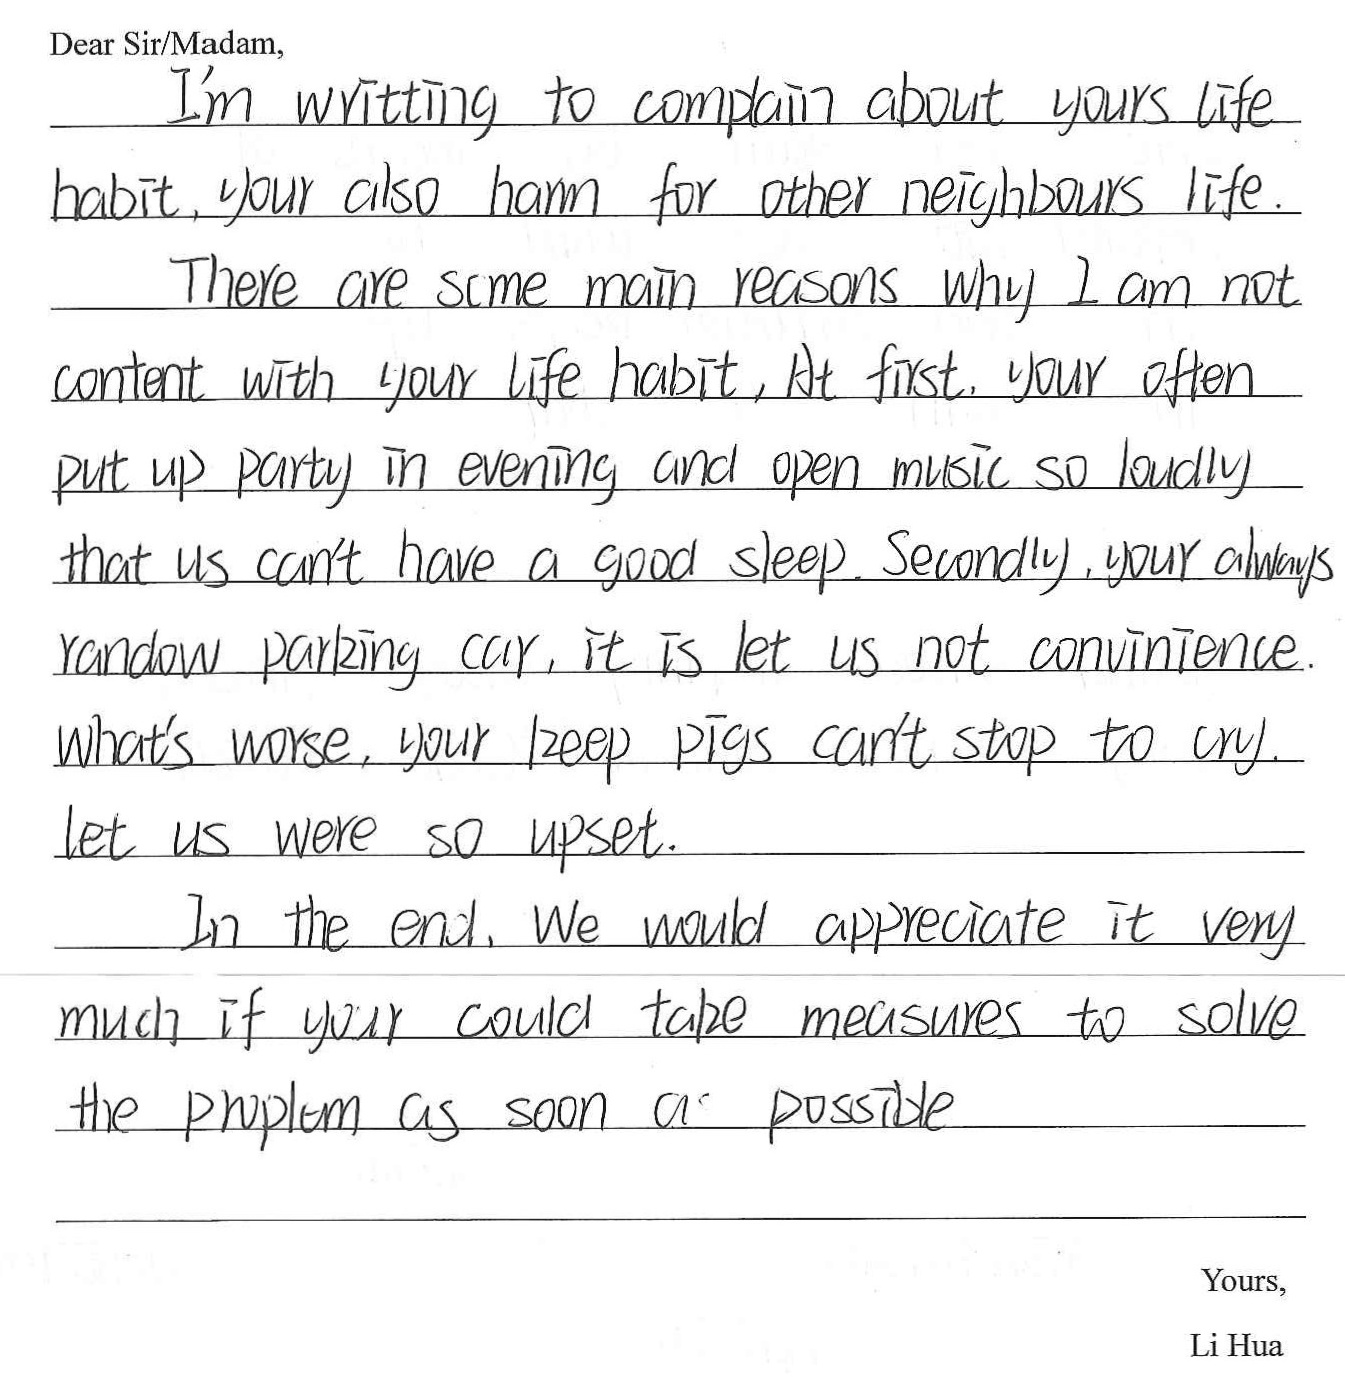 Dear Sir/Madam,
I'm writting to complain about yours life
habit, your also harm for other neighbours life.
There are some main reasons why I am not
content with your life habit, At first, your often
put up party in evening and open music so loudly
that us can't have a good sleep. Secondly, your always
randow parking car, it is let us not convinience.
What's worse, your keep pigs can't stop to cry.
let us were so upset.
In the end, We would appreciate it very
much if your could take measures to solve
the proplem as soon as possible
Yours,
Li Hua